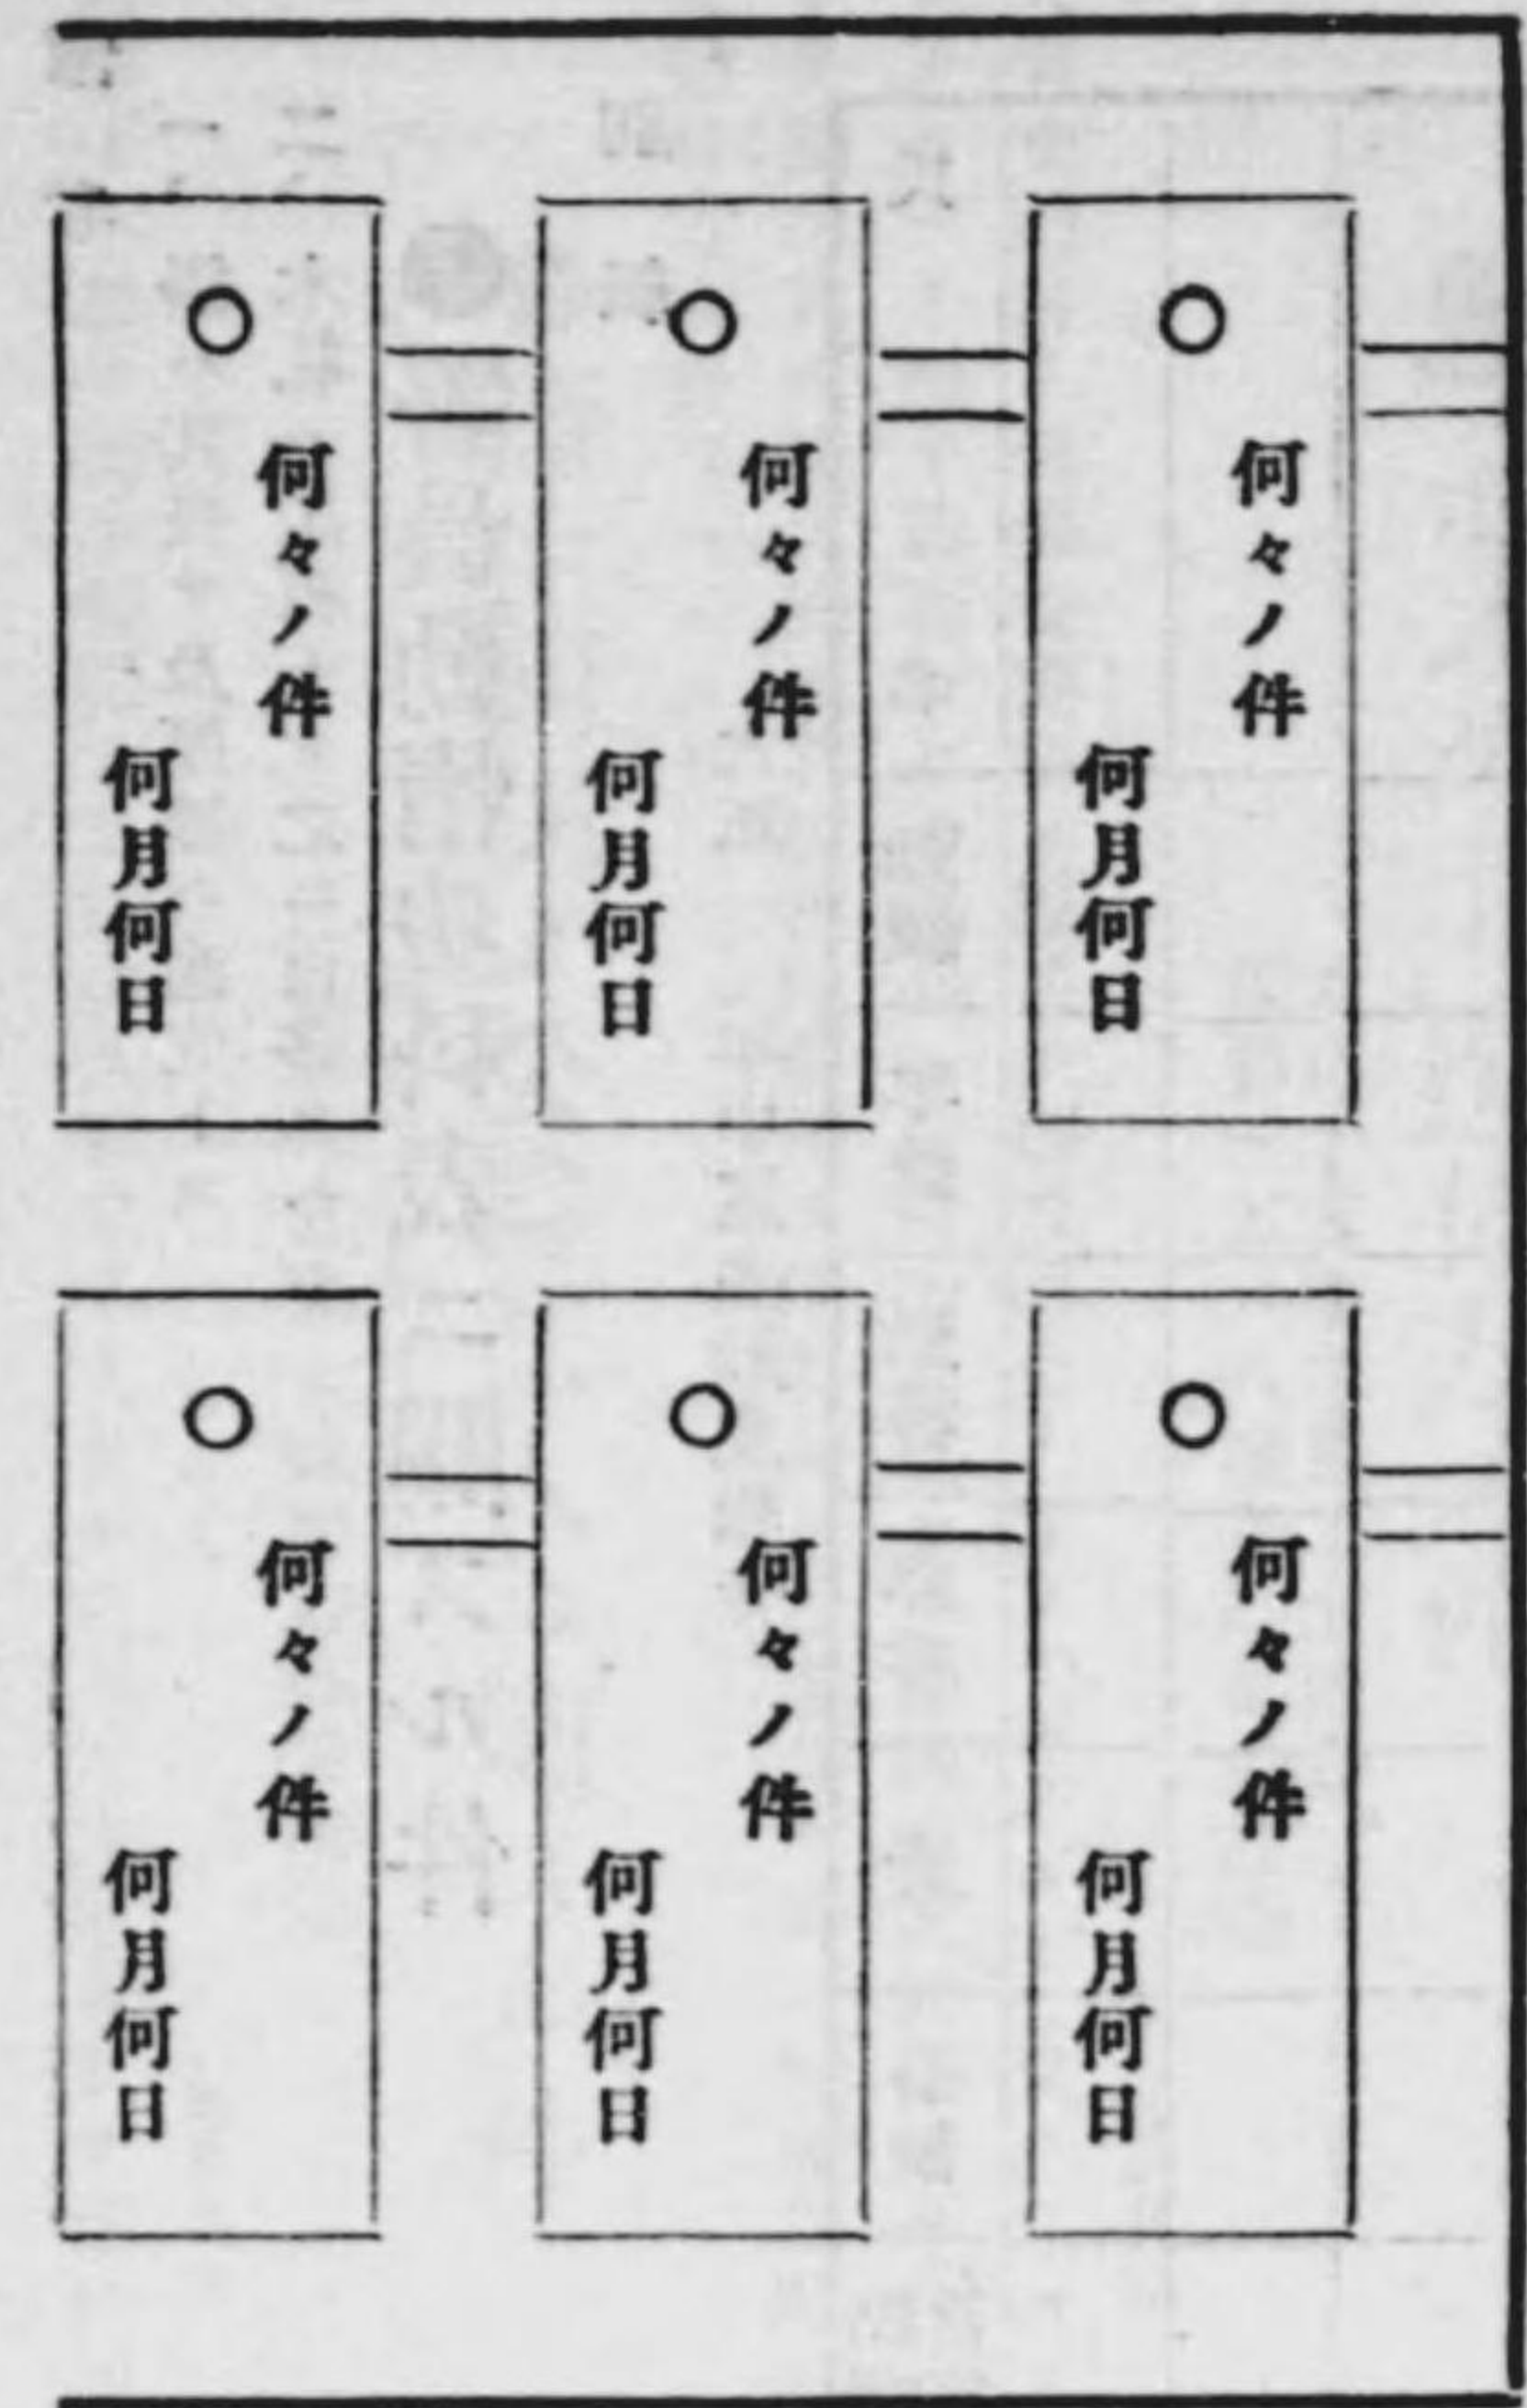 何々ノ件
何月何日
何々ノ件
何月何日
何々ノ件
何月何日
何々ノ件
何月何日
何々ノ件
何月何日
何々ノ件
何月何日